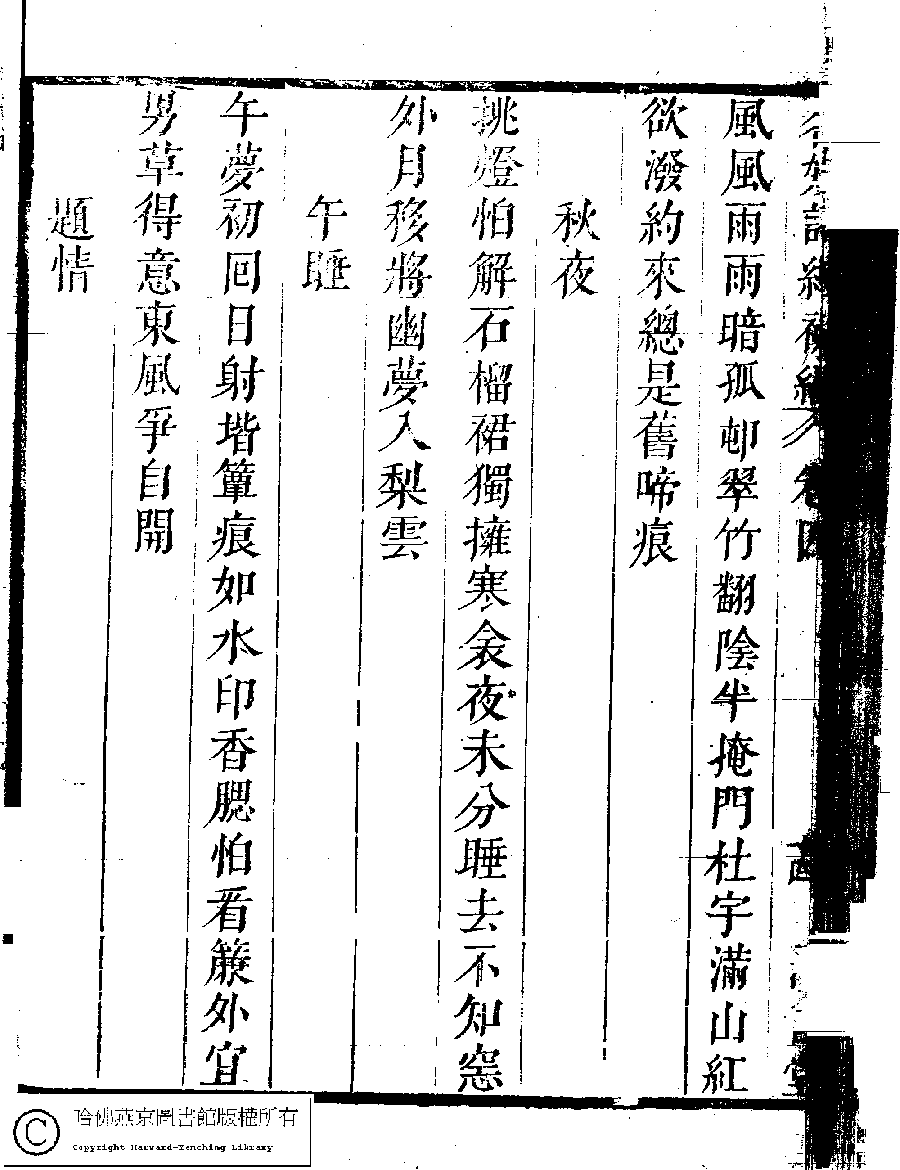 風風雨雨暗孤邨翠竹翻陰半掩門杜宇滿山紅
欲潑約來總是舊啼痕
秋夜
挑燈怕解石榴裙獨擁寒衾夜未分睡去不知窓
外月移將幽夢入梨雲
午睡
午夢初囘日射堦簟痕如水印香腮怕看簾外宜
男草得意東風爭自開
題情
哈佛燕京圖書館版權所有
Copyright Harvard-Yenching Library